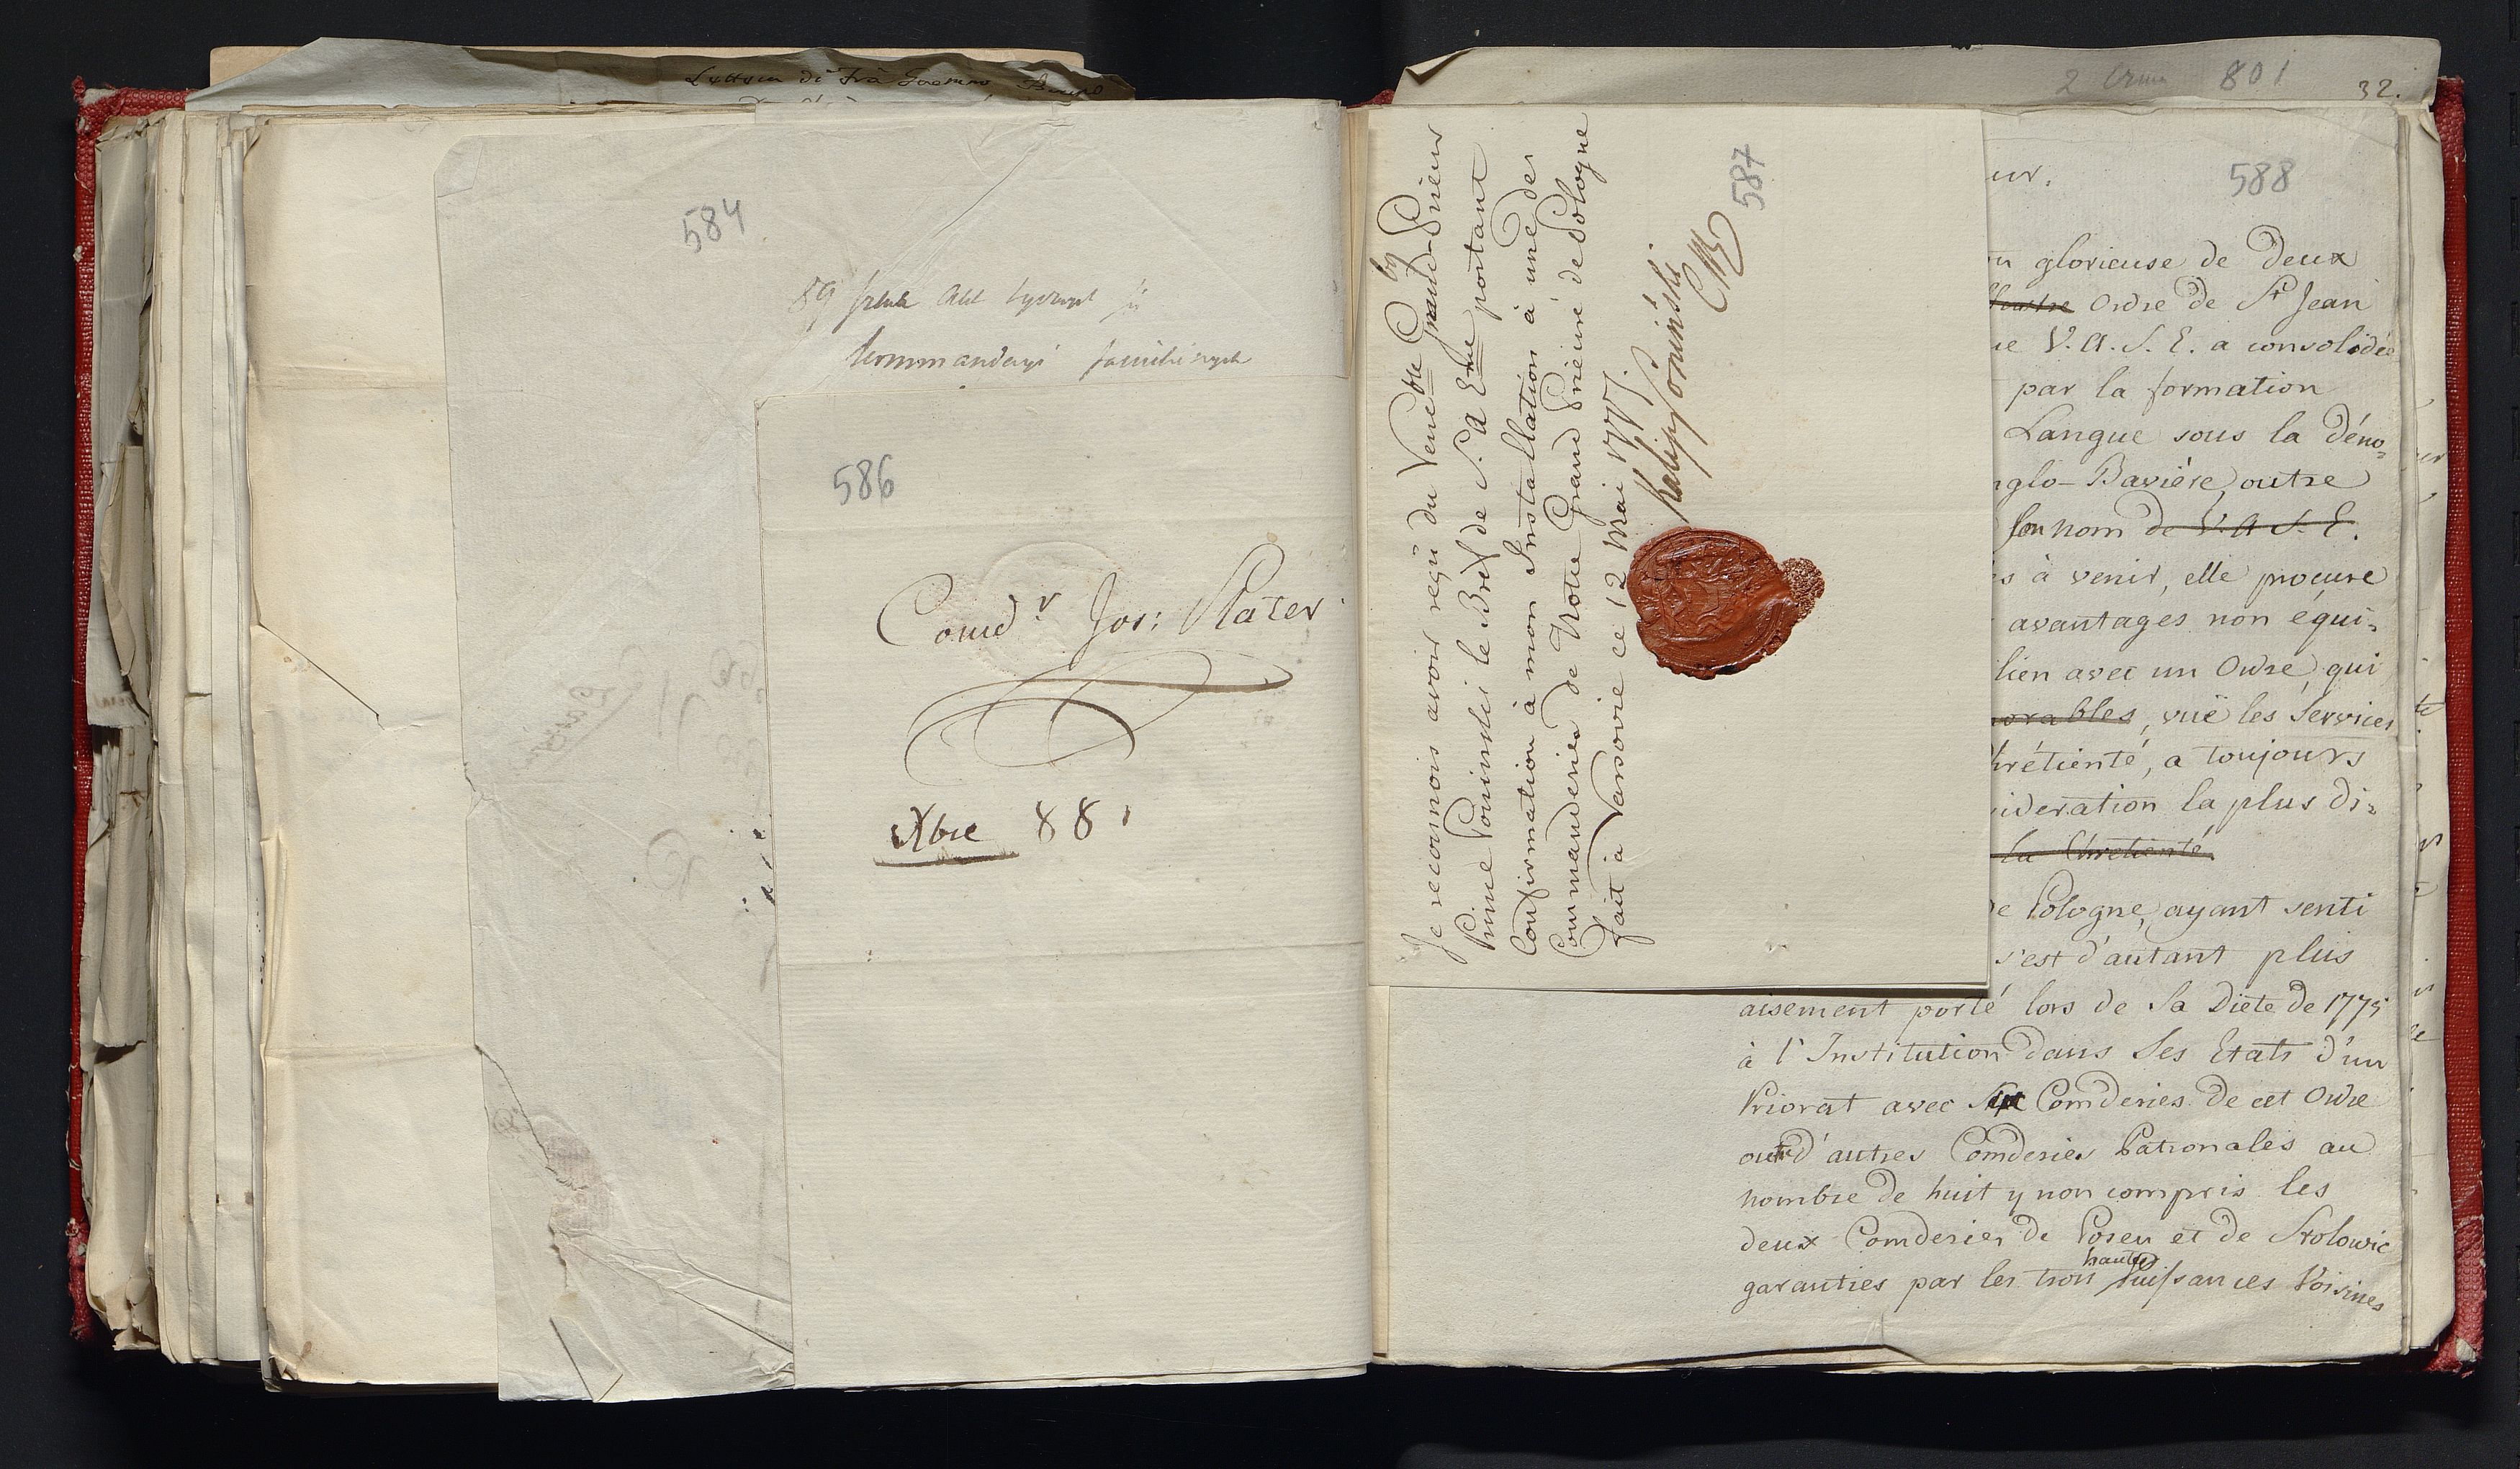 Lettera di Frà
584
59 sztuk Akt tyczących się
Kommanderyi familiinych
586
Comdr Jos: Plater
Xbre 881
Je reconnois avoir reçu du Venéble bg Grand-Prieur
Prince Poninski le Bref de S. A Eme portant
Confirmation à mon Installation à une des
Commanderies de Notre Grand Prieuré de Pologne
fait à Varsovie ce 12 Mai 1777.
Kalixt Poninski
587
2 801
32.
588
ur.
n glorieuse de Deux
Ordre de St Jean
ue V. A. S. E. a consolidée
par la formation
Langue sous la déno=
nglo-Bavière, outre
son nom de V. A. S. E.
s à venir, elle procure
avantages non équi=
lien avec un Ordre, qui
orables, vuë les Services
hrétienté, a toujours
ideration la plus di=
la Chretienté.
e Pologne, ayant senti
s'est d'autant plus
aisement porté lors de sa Diete de 1775
à l'Institution dans Ses Etats d'un
Priorat avec Comderies de cet Ordre
outre d'autres Comderies Patronales au
nombre de huit y non compris les
deux Comderies de Posen et de Stolowic
garanties par les trois hautes Puissances Voisines